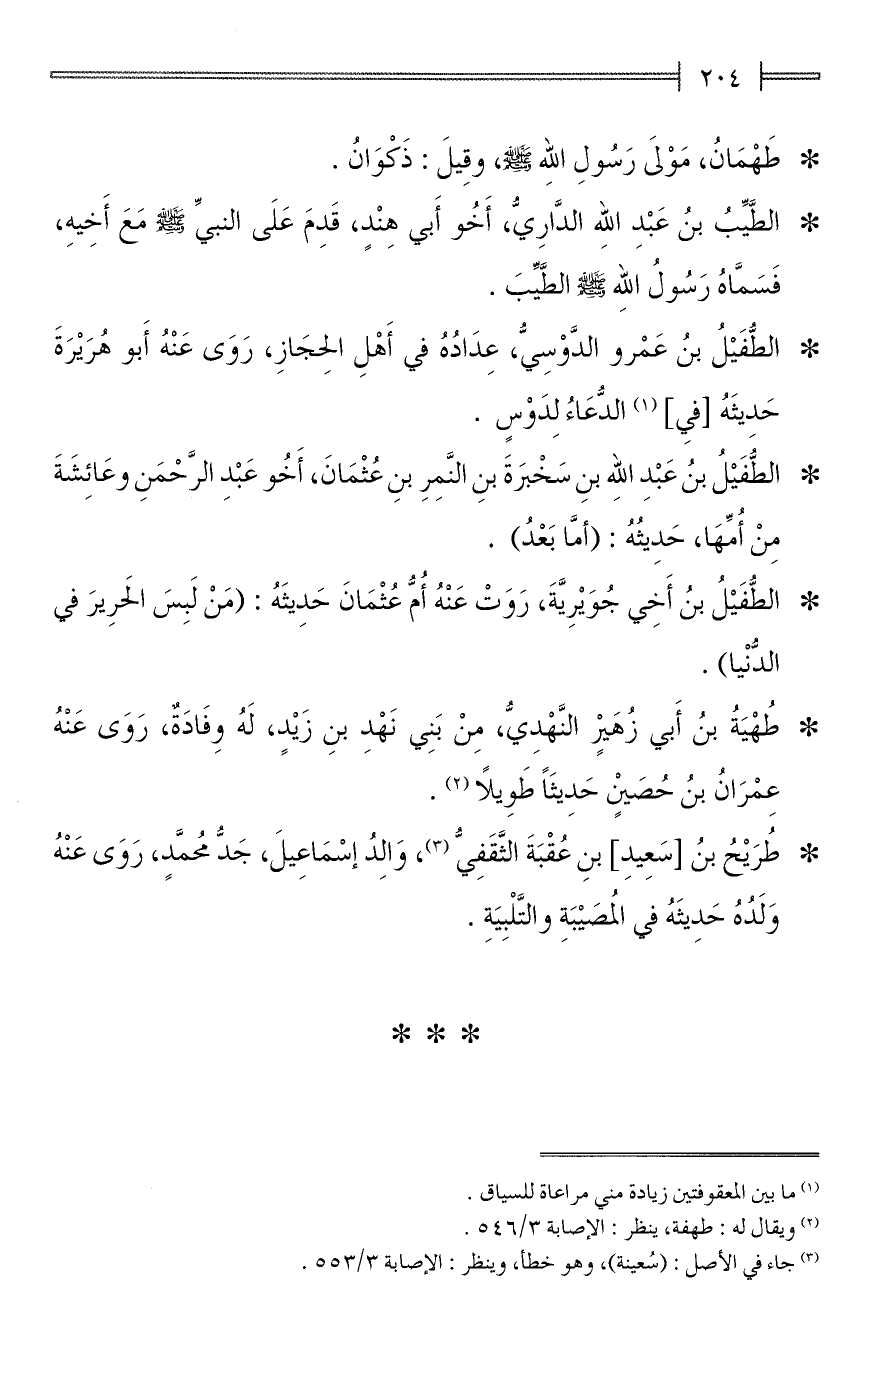 ٢٠٤
* طَهْمَانُ، مَوْلَى رَسُولِ اللهِ ﷺ، وقِيلَ : ذَكْوَانُ .
* الطَّيِّبُ بنُ عَبْدِ اللهِ الدَّارِيُّ، أَخُو أَبي هِنْدٍ، قَدِمَ عَلَى النبيِّ ﷺ مَعَ أَخِيهِ،
فَسَمَّاهُ رَسُولُ اللهِ ﷺ الطَّيِّبَ .
* الطُّفَيْلُ بنُ عَمْرو الدَّوْسِيُّ، عِدَادُهُ في أَهْلِ الحِجَازِ، رَوَى عَنْهُ أَبو هُرَيْرَةَ
حَدِيثَهُ [في] (١) الدُّعَاءُ لِدَوْسٍ .
* الطُّفَيْلُ بنُ عَبْدِ اللهِ بنِ سَخْبَرَةَ بنِ النَّمِرِ بنِ عُثْمَانَ، أَخُو عَبْدِ الرَّحْمَنِ وعَائِشَةَ
مِنْ أُمِّهَا، حَدِيثُهُ : (أمَّا بَعْدُ) .
* الطُّفَيْلُ بنُ أَخِي جُوَيْرِيَّةَ، رَوَتْ عَنْهُ أُمُّ عُثْمَانَ حَدِيثَهُ : (مَنْ لَبِسَ الحَرِيرَ في
الدُّنْيا) .
* طُهْيَةُ بنُ أَبي زُهَيَرْ النَّهْدِيُّ، مِنْ بَنِي نَهْدِ بنِ زَيْدٍ، لَهُ وِفَادَةٌ، رَوَى عَنْهُ
عِمْرَانُ بنُ حُصَيَنْ حَدِيثَاً طَوِيلًا (٢) .
* طُرَيْحُ بنُ [سَعِيدِ] بنِ عُقْبَةَ الثَّقَفِيُّ (٣)، وَالِدُ إسْمَاعِيلَ، جَدُّ مُحمَّدٍ، رَوَى عَنْهُ
وَلَدُهُ حَدِيثَهُ فِي المُصَيْبَةِ والتَّلْبِيَةِ .
* * *
(١) ما بين المعقوفتين زيادة مني مراعاة للسياق .
(٢) ويقال له : طهفة، ينظر : الإصابة ٥٤٦/٣ .
(٣) جاء في الأصل : (سُعينة)، وهو خطأ، وينظر : الإصابة ٥٥٣/٣ .